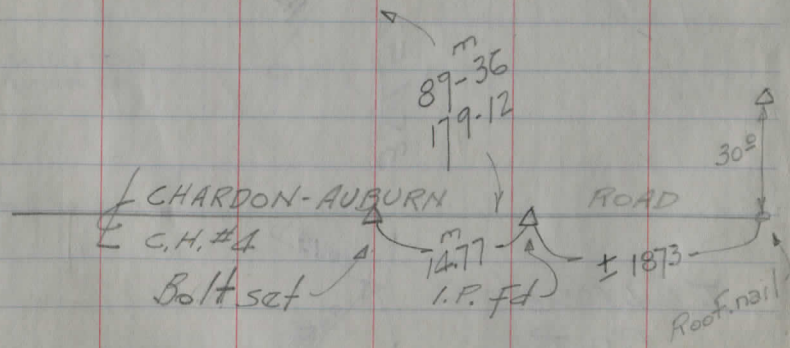 m
89-36
179-12
30º
℄ CHARDON-AUBURN ROAD
C.H. #4
m
14.77
± 1873
Bolt set
I.P. Fd
Roof. nail